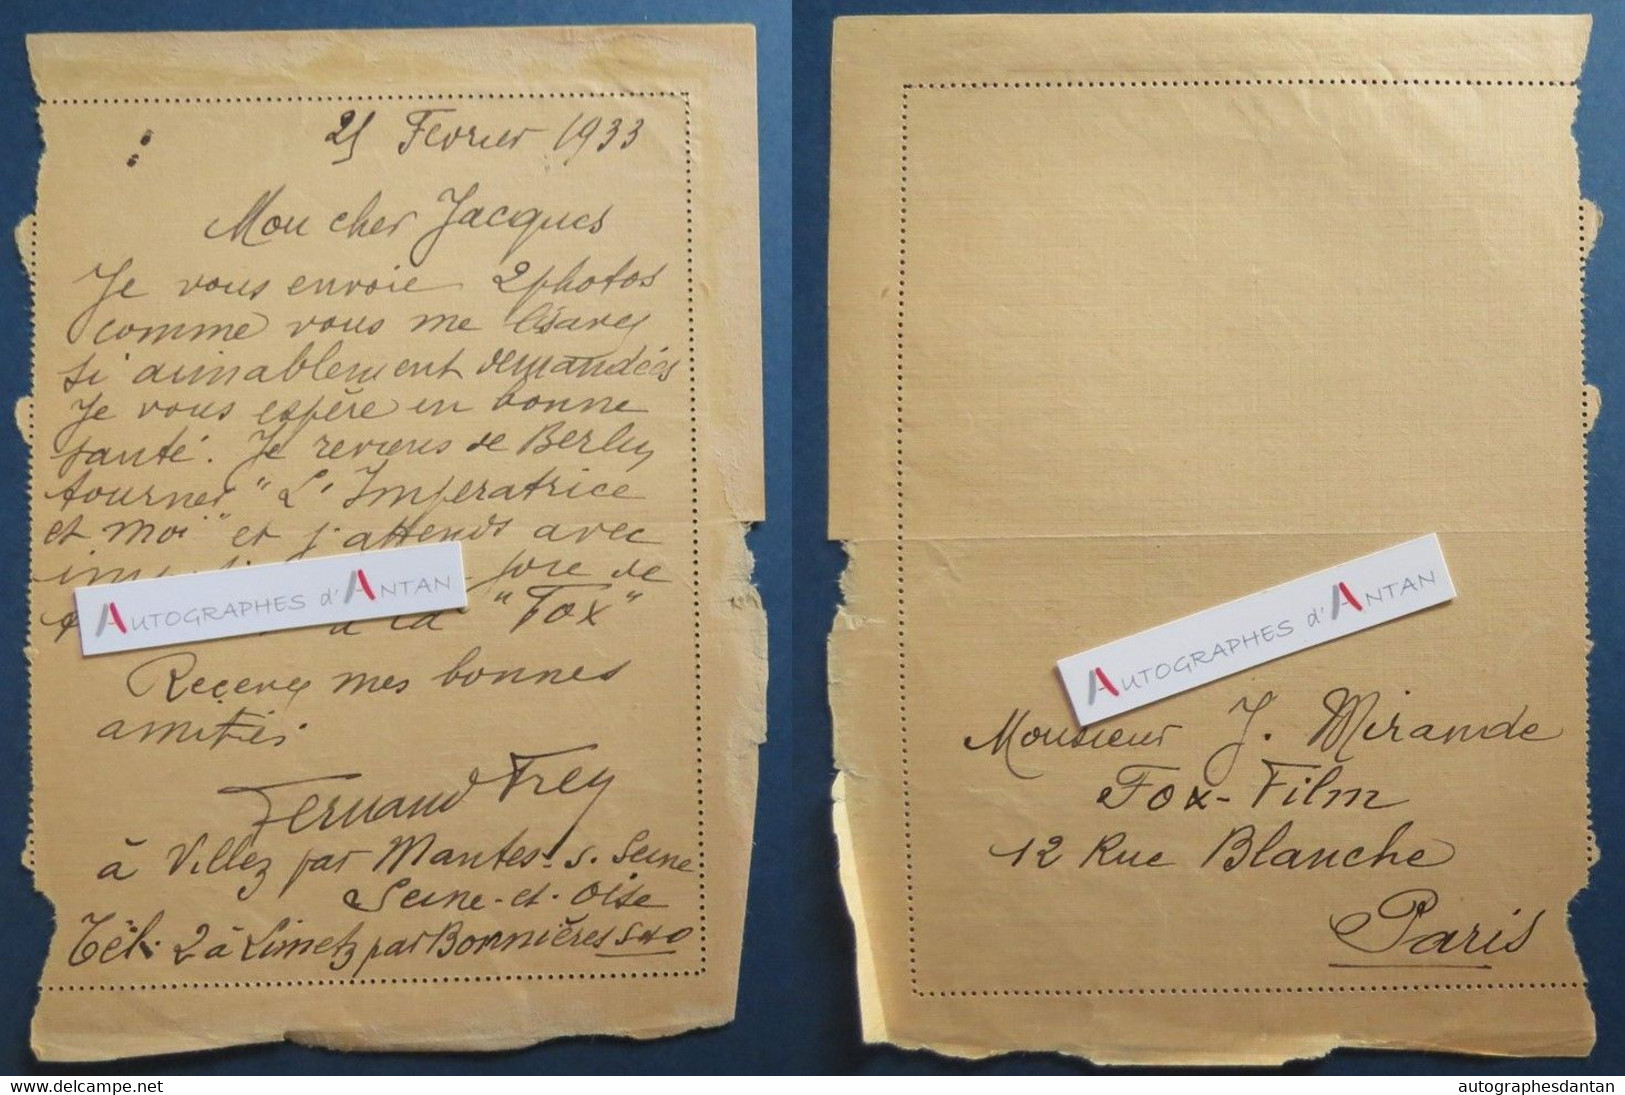 Février 1933
Mon cher Jacques
Je vous envoie 2 photos
comme vous me les avez
si aimablement demandées
Je vous espère en bonne
santé. Je reviens de Berlin
tourner "L'Impératrice
et moi" et j'attends avec
de
à la "Fox"
Recevez mes bonnes
amitiés.
Fernand Frey
à Villez par Mantes-s.Seine
Seine-et-Oise
Tél. 2 à Limetz par Bonnières S&O
AUTOGRAPHES d'ANTAN
AUTOGRAPHES d'ANTAN
Monsieur J. Mirande
Fox-Film
12 Rue Blanche
Paris
delcampe.net
autographesdantan